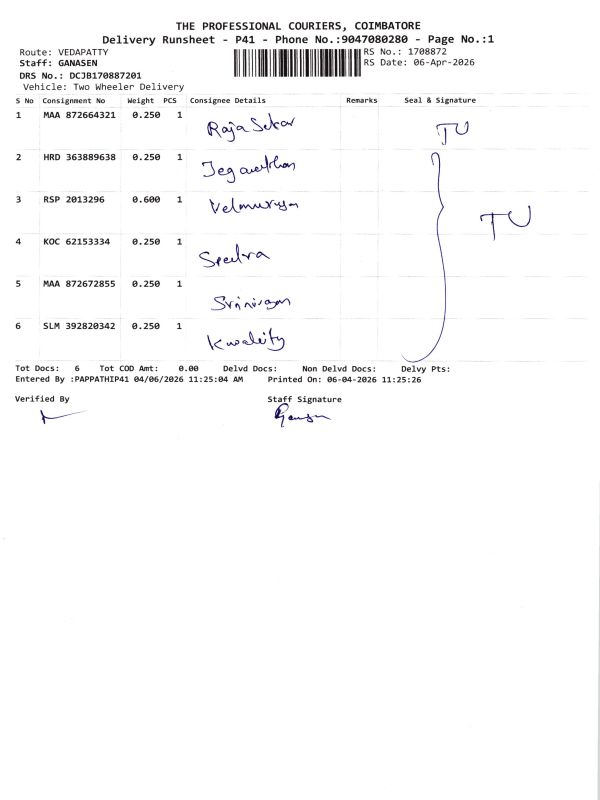 THE PROFESSIONAL COURIERS, COIMBATORE
Delivery Runsheet - P41 - Phone No.:9047080280 - Page No.:1
Route: VEDAPATTY RS No.: 1708872
Staff: GANASEN RS Date: 06-Apr-2026
DRS No.: DCJB170887201
Vehicle: Two Wheeler Delivery
S No Consignment No Weight PCS Consignee Details Remarks Seal & Signature
1 MAA 872664321 0.250 1 Raja Sekar TU
2 HRD 363889638 0.250 1
3 RSP 2013296 0.600 1 Velmurugan TU
4 KOC 62153334 0.250 1 Spectra
5 MAA 872672855 0.250 1 Srinivasan
6 SLM 392820342 0.250 1 Kwality
Tot Docs: 6 Tot COD Amt: 0.00 Delvd Docs: Non Delvd Docs: Delvy Pts:
Entered By :PAPPATHIP41 04/06/2026 11:25:04 AM Printed On: 06-04-2026 11:25:26
Verified By Staff Signature